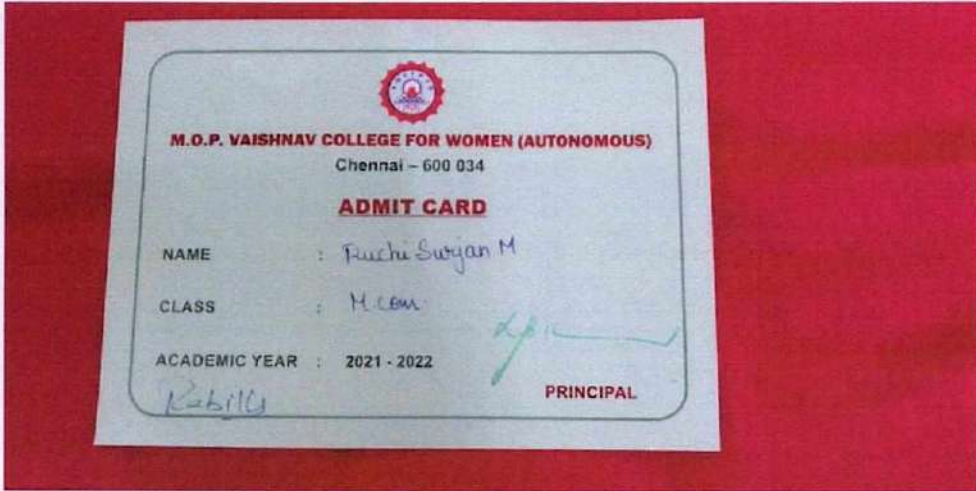 M.O.P. VAISHNAV COLLEGE FOR WOMEN (AUTONOMOUS)
Chennai – 600 034
ADMIT CARD
NAME : Ruchi Surjan M
CLASS : M.com
ACADEMIC YEAR : 2021 - 2022
PRINCIPAL